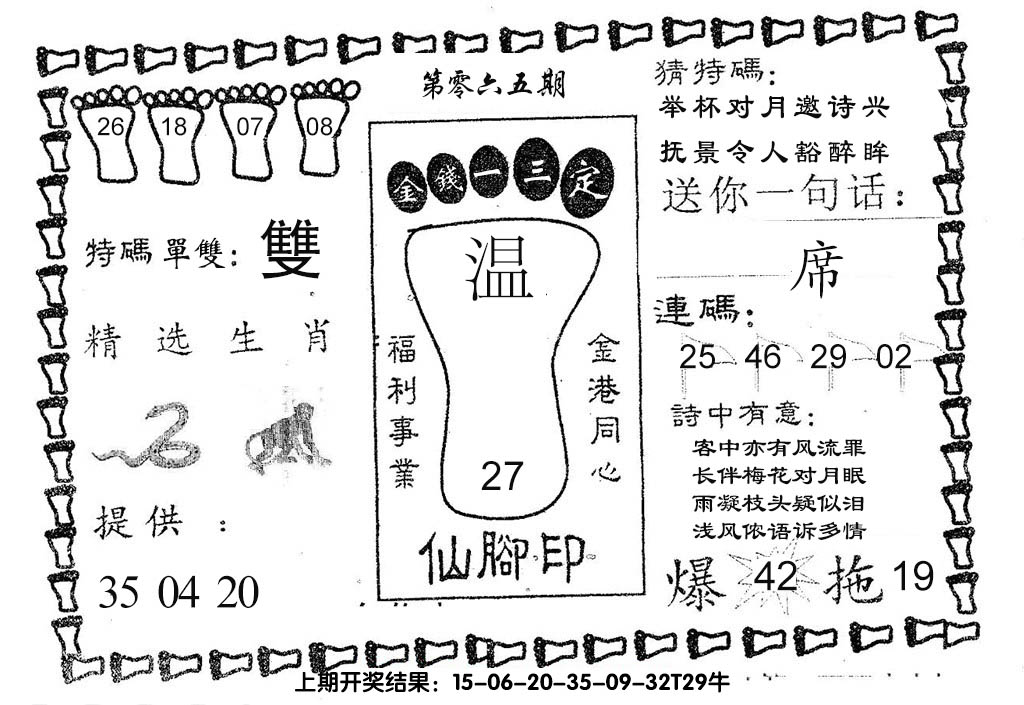 第零六五期
26 18 07 08
特碼單雙：雙
精选生肖
提供：
35 04 20
金錢一三定
温
福利事業
金港同心
27
仙腳印
猜特碼：
举杯对月邀诗兴
抚景令人豁醉眸
送你一句话：
席
連碼：
25 46 29 02
詩中有意：
客中亦有风流罪
长伴梅花对月眠
雨凝枝头疑似泪
浅风侬语诉多情
爆 42 拖 19
上期开奖结果：15-06-20-35-09-32T29牛